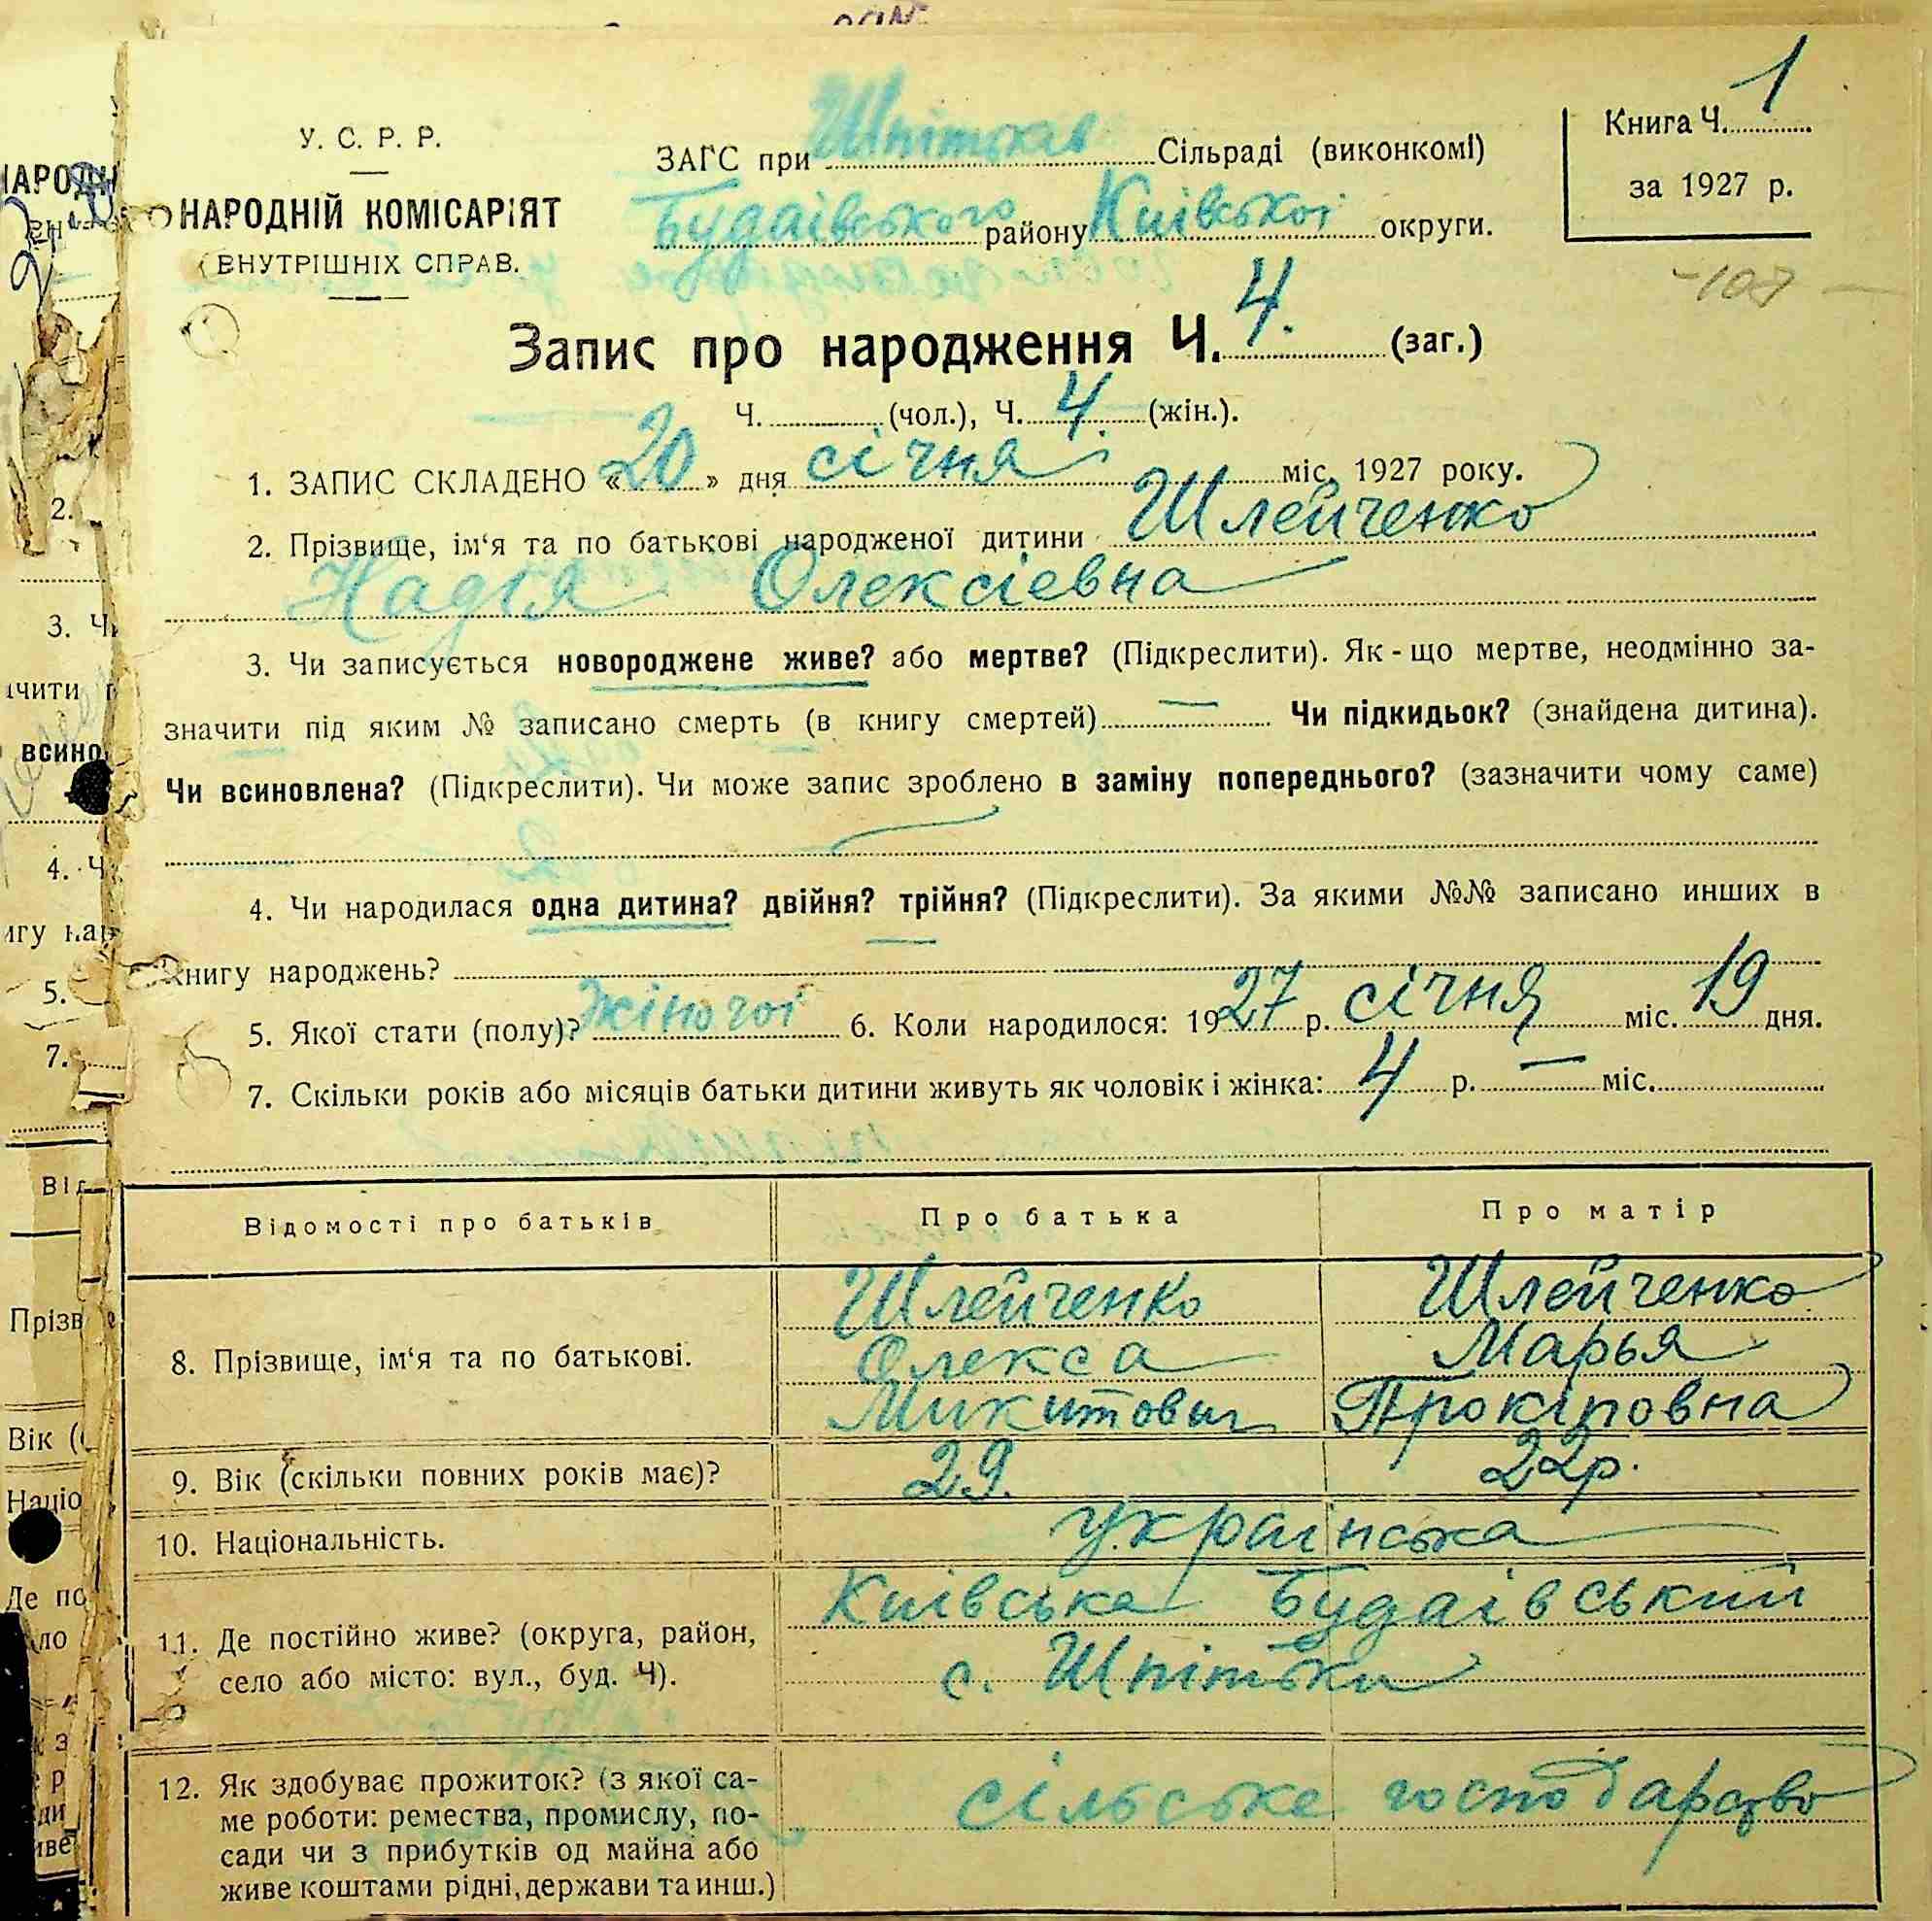 У. С. Р. Р.
НАРОДНІЙ КОМІСАРІЯТ
ВНУТРІШНІХ СПРАВ.
ЗАГС при Шпітьках Сільраді (виконкомі)
Будаівського району Київськоі округи.
Книга Ч. 1
за 1927 р.
-107-
Запис про народження Ч. 4. (заг.)
Ч. (чол.), Ч. 4. (жін.).
1. ЗАПИС СКЛАДЕНО «20» дня січня міс. 1927 року.
2. Прізвище, ім‘я та по батькові народженої дитини Шлейченко
Надія Олексіевна
3. Чи записується новороджене живе? або мертве? (Підкреслити). Як-що мертве, неодмінно за-
значити під яким № записано смерть (в книгу смертей) — Чи підкидьок? (знайдена дитина).
Чи всиновлена? (Підкреслити). Чи може запис зроблено в заміну попереднього? (зазначити чому саме)
4. Чи народилася одна дитина? двійня? трійня? (Підкреслити). За якими №№ записано инших в
книгу народжень?
5. Якої стати (полу)? Жіночоі 6. Коли народилося: 1927 р. січня міс. 19 дня.
7. Скільки років або місяців батьки дитини живуть як чоловік і жінка: 4 р. — міс.
Відомості про батьків Про батька Про матір
8. Прізвище, ім‘я та по батькові.
Шлейченко Шлейченко
Олекса Марья
Микитович Прокіповна
9. Вік (скільки повних років має)? 29. 22р.
10. Національність. украінська
11. Де постійно живе? (округа, район,
село або місто: вул., буд. Ч).
Київська Будаівський
с. Шпітьки
12. Як здобуває прожиток? (з якої са-
ме роботи: ремества, промислу, по-
сади чи з прибутків од майна або
живе коштами рідні, держави та инш.)
сільське господарство